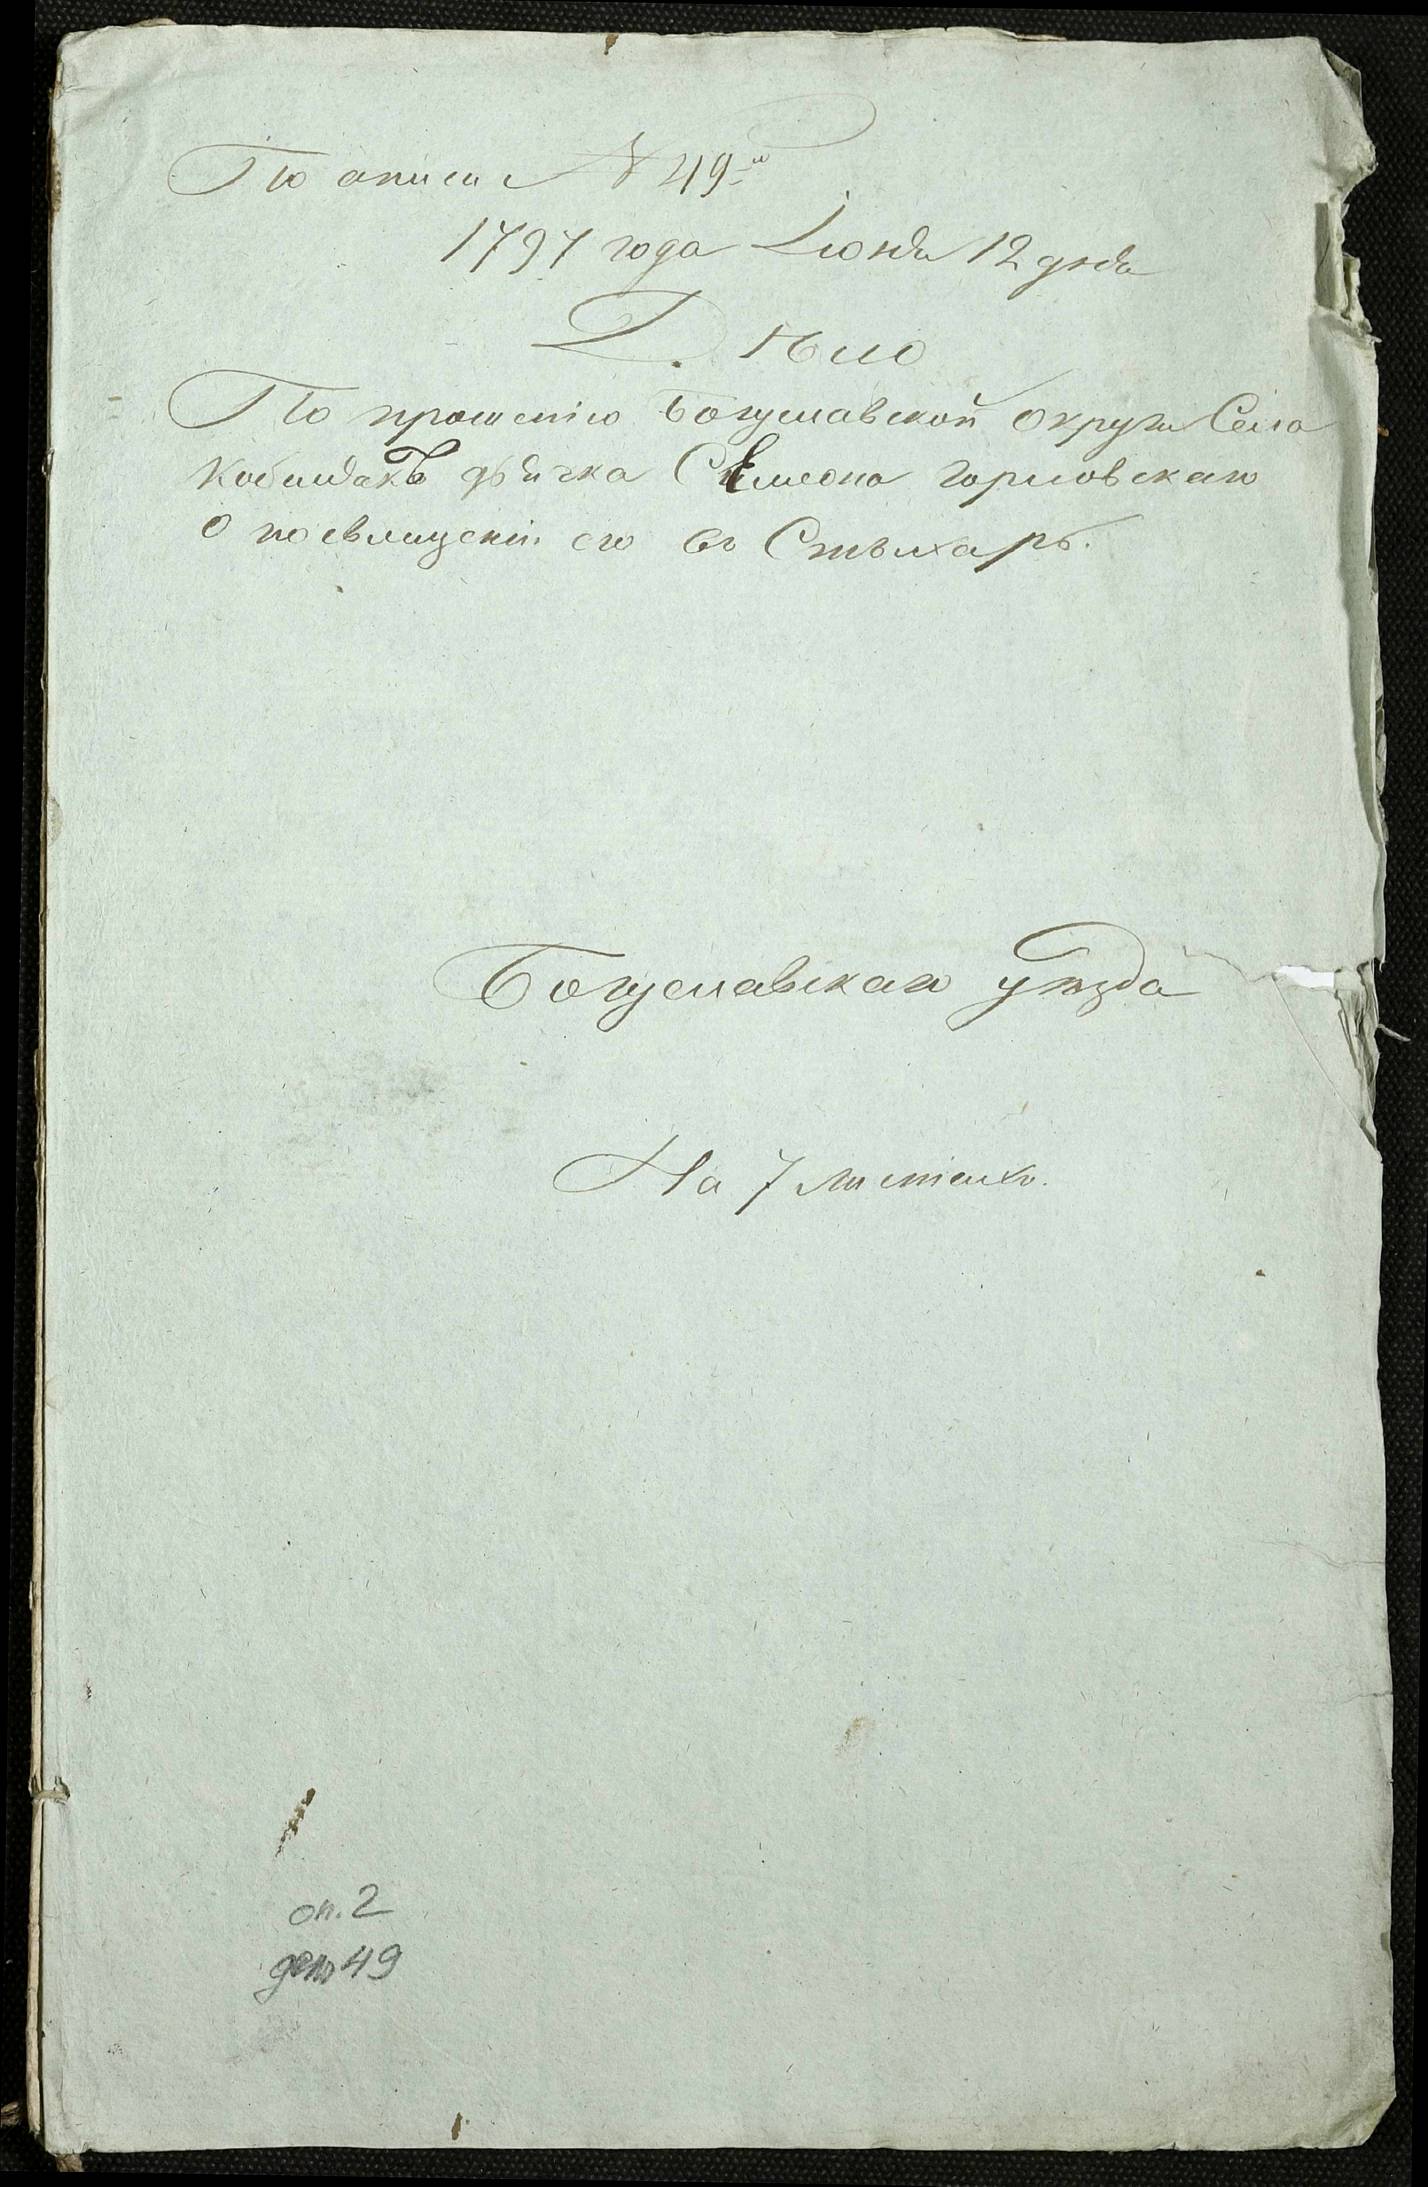 По описи № 49й
1797 года Июня 12 дня
Дѣло
По прошенію Богуславской округи Села
Кобилякъ дьячка Симеона Горловскаго
О посвященіи его въ Стыхарь.
Богуславскаго уѣзда
На 7 листахъ.
оп. 2
дело 49